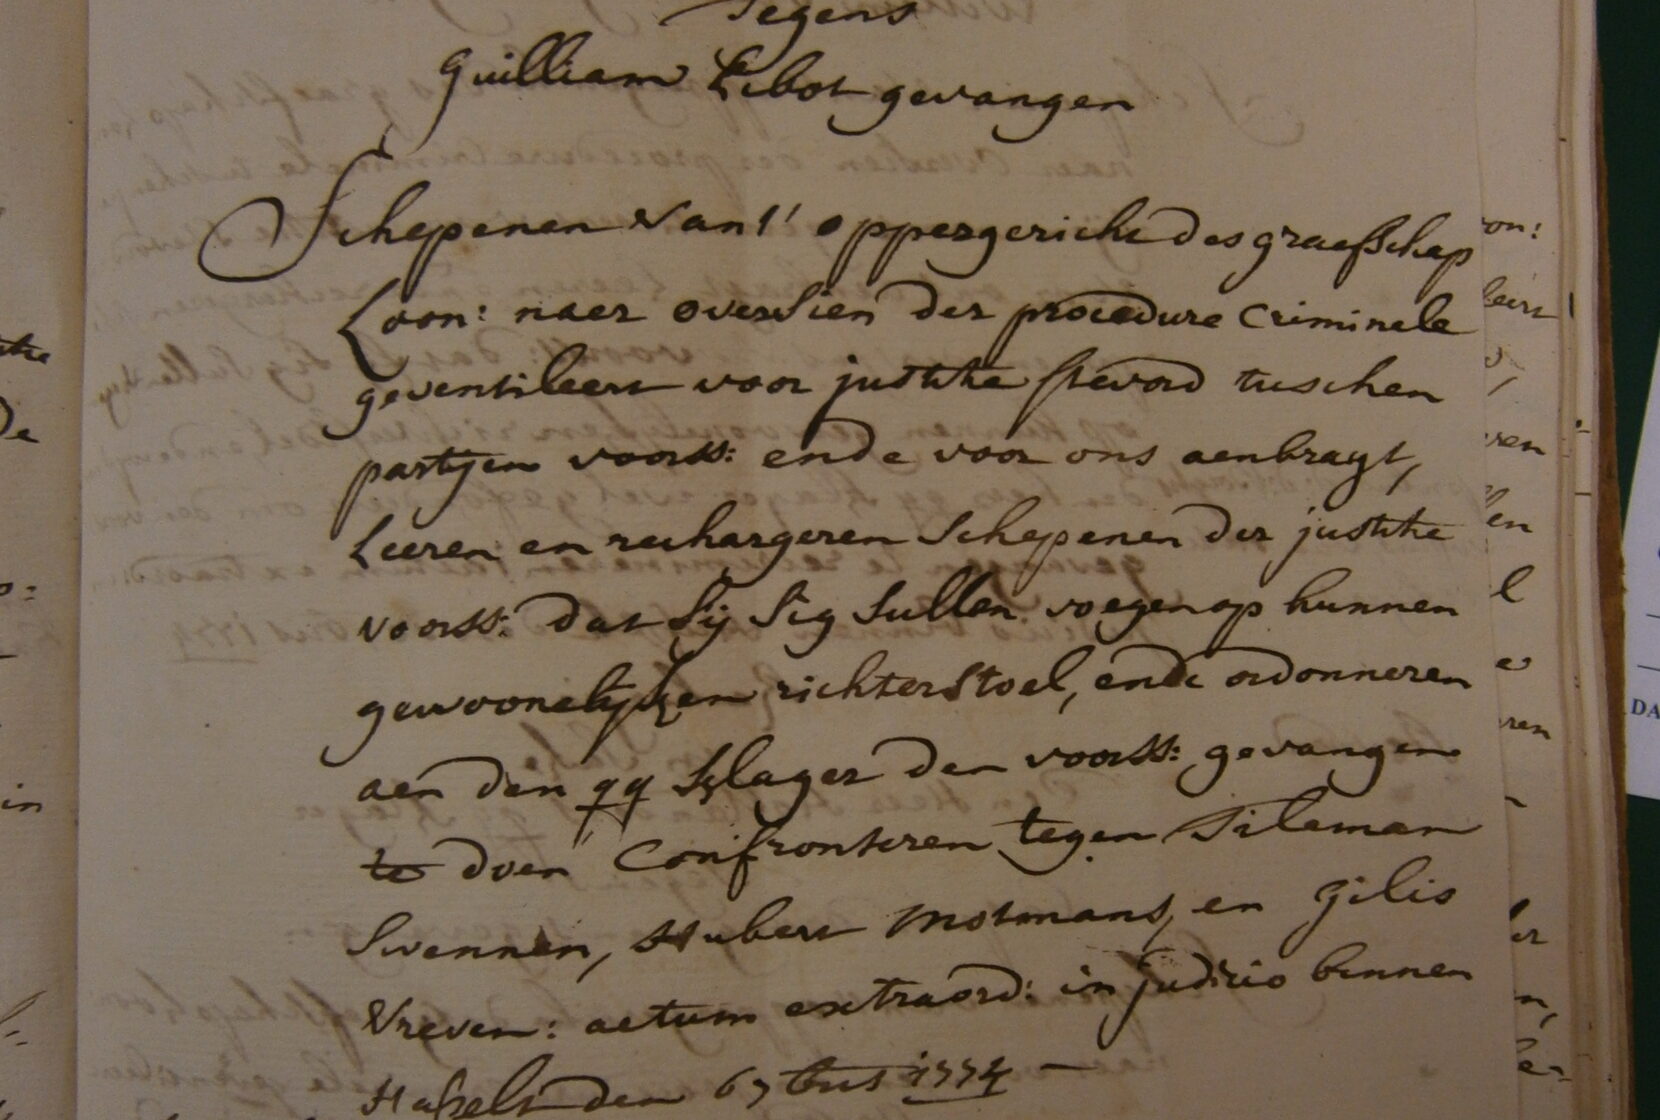 Tegens
Guilliam Libot gevangen
Schepenen van t' oppergericht des graefschap
Loon: naer oversien der procedure Criminele
geventileert voor justitie stevord tuschen
partijen voorss: ende voor ons aenbragt,
Leeren en rechargeren Schepenen der justitie
voorss: dat Sij Sig Sullen voegen op hunnen
gewoonelijken richterstoel, ende ordonneren
aen den qq klager den voorss: gevangen
te doen Confronteren tegen Tileman
Swennen, Hubert Motmans, en gilis
Vreven: actum extraord: in judicio binnen
Hasselt den 6 7bris 1774